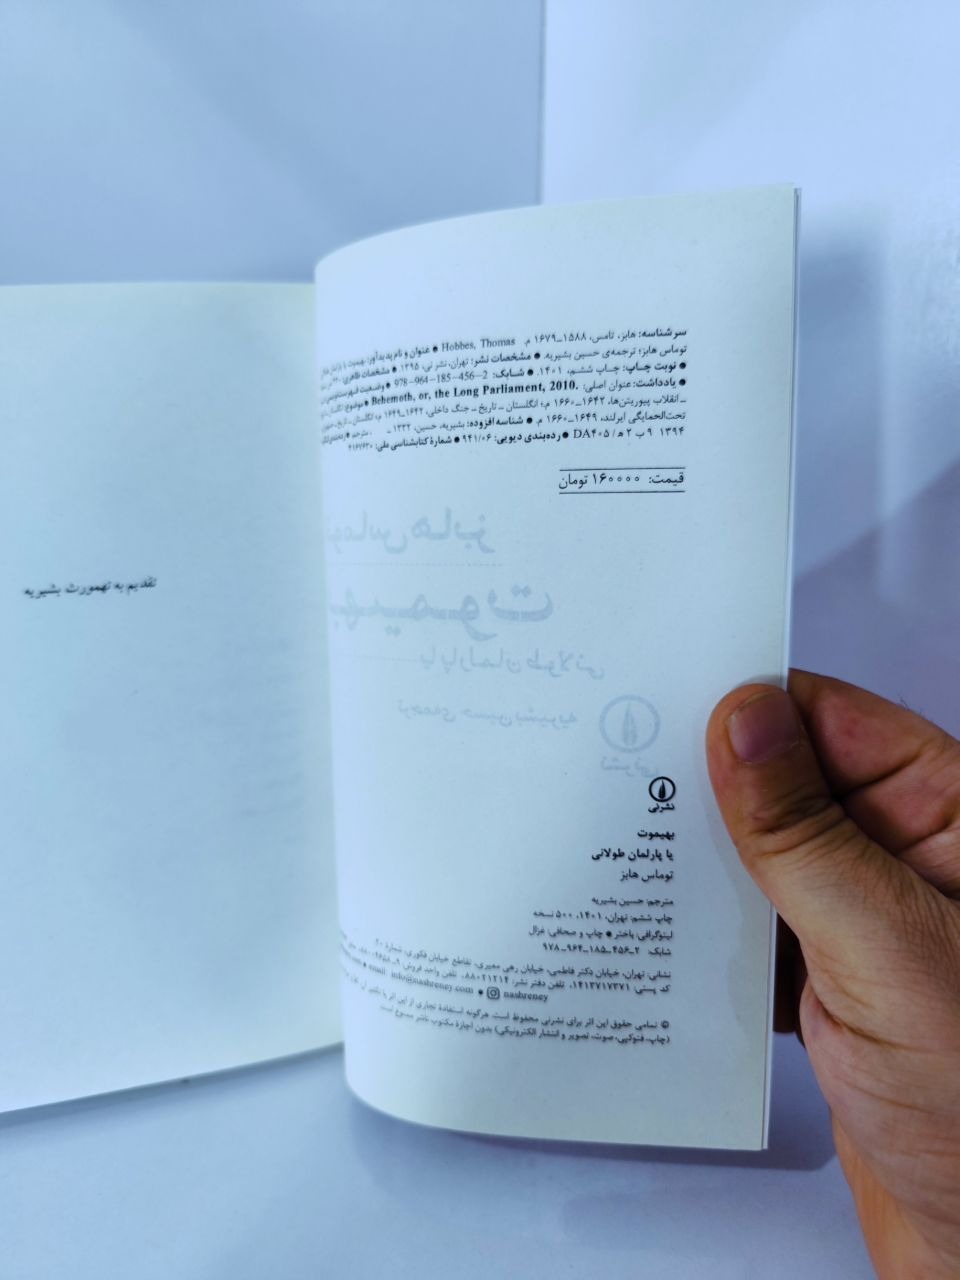 سرشناسه: هابز، تامس، ۱۵۸۸ـ۱۶۷۹ م. Hobbes, Thomas ● عنوان و نام پدیدآور: بهیموت یا پارلمان
توماس هابز؛ ترجمه‌ی حسین بشیریه. ● مشخصات نشر: تهران، نشر نی، ۱۳۹۵. ● مشخصات ظاهری:
● نوبت چاپ: چاپ ششم، ۱۴۰۱. ● شابک: 978-964-185-456-2 ● وضعیت فهرست‌نویسی:
● یادداشت: عنوان اصلی: Behemoth, or, the Long Parliament, 2010. ● موضوع: انگلستان ـ
ـ انقلاب پیوریتن‌ها، ۱۶۴۲ـ۱۶۶۰ م؛ انگلستان ـ تاریخ ـ جنگ داخلی، ۱۶۴۲ـ۱۶۴۹ م؛ انگلستان ـ تاریخ ـ
تحت‌الحمایگی ایرلند، ۱۶۴۹ـ۱۶۶۰ م. ● شناسه افزوده: بشیریه، حسین، ۱۳۳۲ ـ ، مترجم ●
۱۳۹۴ ۹ ب ۲ ه‍ / DA۴۰۵ ● رده‌بندی دیویی: ۹۴۱/۰۶ ● شمارهٔ کتابشناسی ملی: ۳۱۶۷۶۳۰
قیمت: ۱۶۰۰۰۰ تومان
تقدیم به تهمورث بشیریه
توماس هابز
بهیموت
یا پارلمان طولانی
ترجمه‌ی حسین بشیریه
نشرنی
نشرنی
بهیموت
یا پارلمان طولانی
توماس هابز
مترجم: حسین بشیریه
چاپ ششم: تهران، ۱۴۰۱، ۵۰۰ نسخه
لیتوگرافی: باختر ● چاپ و صحافی: غزال
شابک ۲ـ۴۵۶ـ۱۸۵ـ۹۶۴ـ۹۷۸
نشانی: تهران، خیابان دکتر فاطمی، خیابان رهی معیری، تقاطع خیابان فکوری، شمارهٔ ۲۰
کد پستی: ۱۴۱۳۷۱۷۳۷۱، تلفن دفتر نشر: ۸۸۰۲۱۲۱۴، تلفن واحد فروش: ۹ـ۸۸۰۰۴۶۵۸
email: info@nashreney.com ● nashreney
© تمامی حقوق این اثر برای نشرنی محفوظ است. هرگونه استفادهٔ تجاری از این اثر یا تکثیر آن
(چاپ، فتوکپی، صوت، تصویر و انتشار الکترونیکی) بدون اجازهٔ مکتوب ناشر ممنوع است.